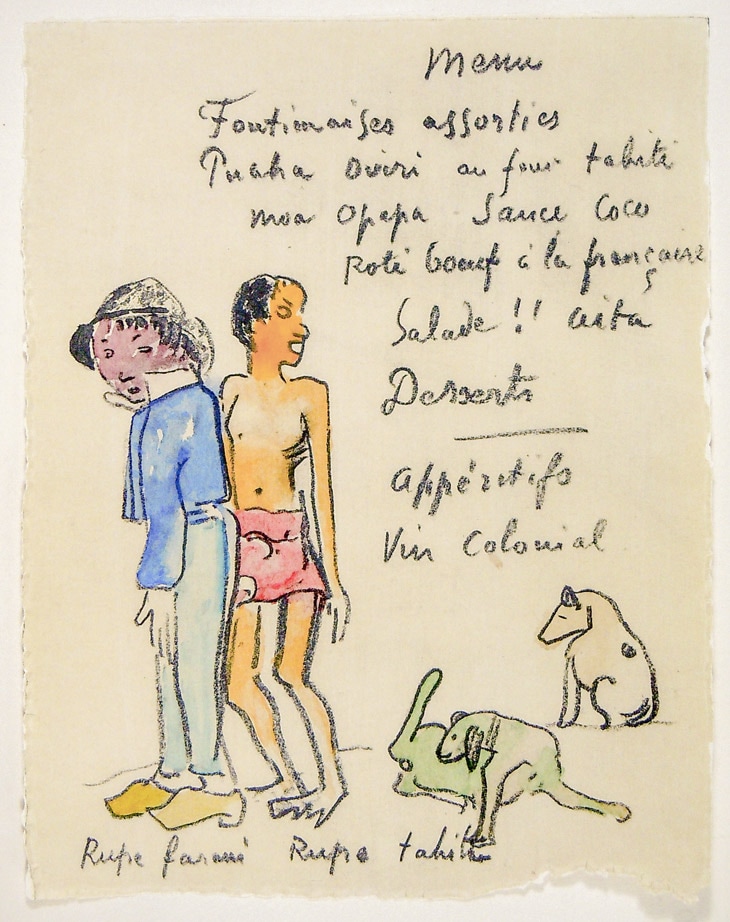 Menu
Fontimaises assorties
Puaha oviri au four tahiti
moa Opapa Sauce Coco
Roti boeuf à la française
Salade !! aita
Desserts
Appéritifs
Vin Colonial
Rupe farani Rupe tahiti